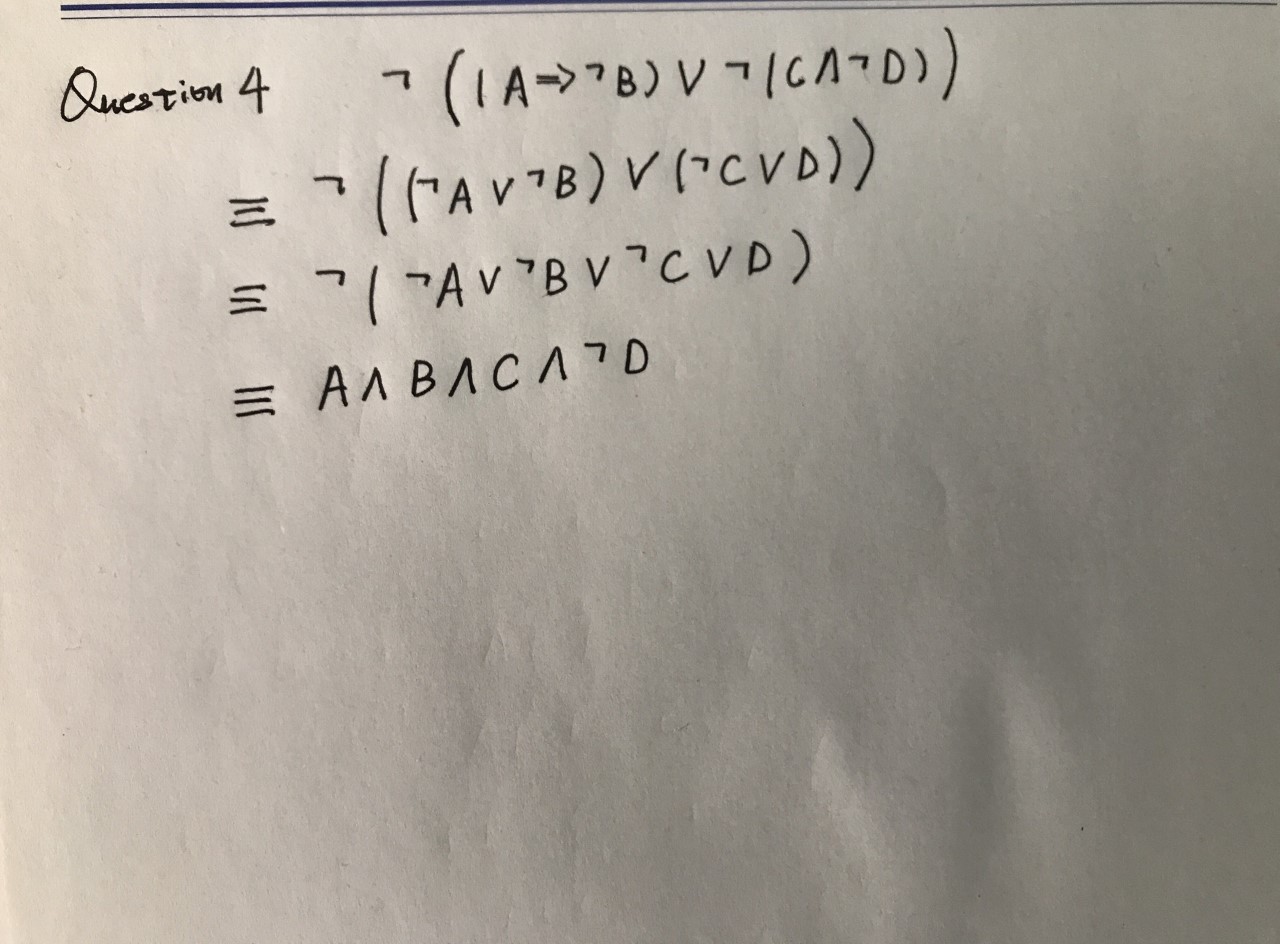 Question 4 ¬ ((A => ¬B) ∨ ¬(C ∧ ¬D))
≡ ¬ ((¬A ∨ ¬B) ∨ (¬C ∨ D))
≡ ¬ (¬A ∨ ¬B ∨ ¬C ∨ D)
≡ A ∧ B ∧ C ∧ ¬D